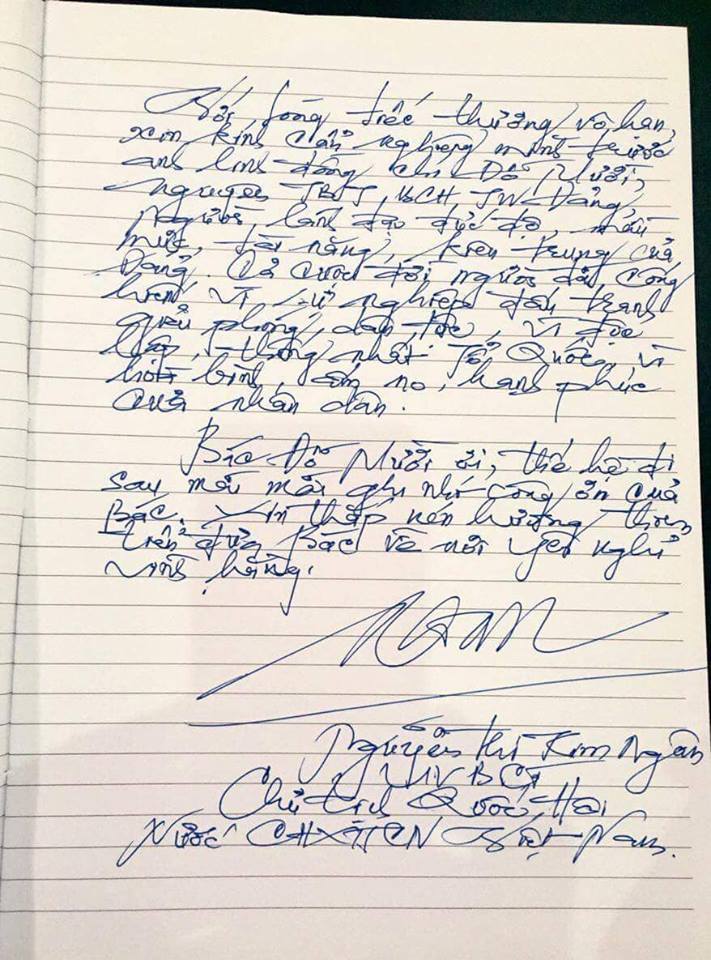 Với lòng tiếc thương vô hạn,
xin kính cẩn nghiêng mình trước
anh linh đồng chí Đỗ Mười,
Nguyên TBT, BCH TW Đảng,
Người lãnh đạo đức độ, mẫu
mực, tài năng, kiên trung của
Đảng. Cả cuộc đời người đã cống
hiến vì sự nghiệp đấu tranh
giải phóng dân tộc, vì độc
lập, thống nhất Tổ Quốc, vì
hòa bình, ấm no, hạnh phúc
của nhân dân.
Bác Đỗ Mười ơi, thế hệ đi
sau mãi mãi ghi nhớ công ơn của
Bác. Xin thắp nén hương thơm
tiễn đưa Bác về nơi yên nghỉ
vĩnh hằng.
Nguyễn Thị Kim Ngân
UVBCT
Chủ tịch Quốc Hội
Nước CHXHCN Việt Nam.